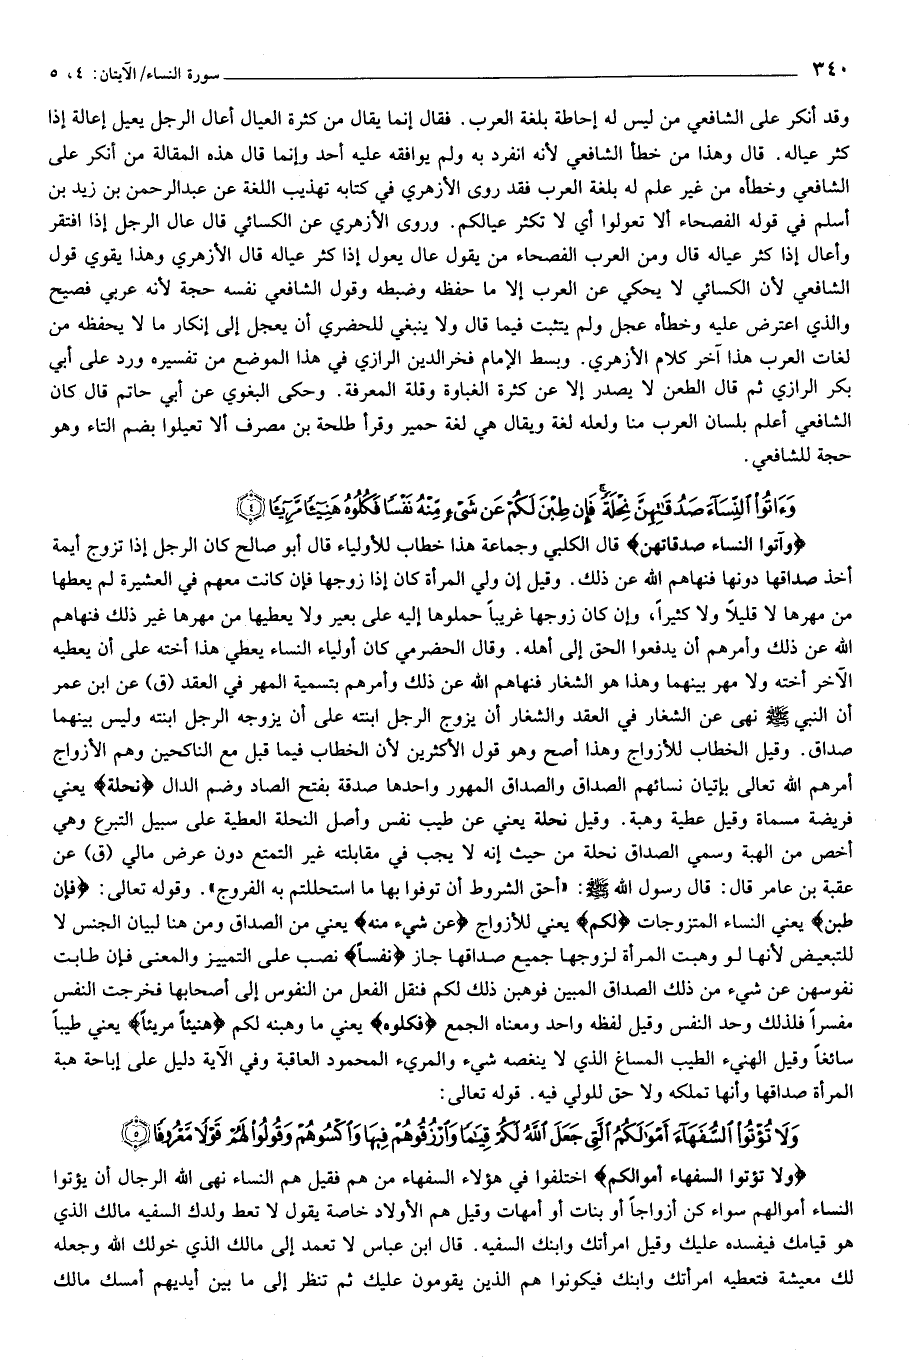 ٣٤٠ سورة النساء/ الآيتان: ٤، ٥
وقد أنكر على الشافعي من ليس له إحاطة بلغة العرب. فقال إنما يقال من كثرة العيال أعال الرجل يعيل إعالة إذا
كثر عياله. قال وهذا من خطأ الشافعي لأنه انفرد به ولم يوافقه عليه أحد وإنما قال هذه المقالة من أنكر على
الشافعي وخطأه من غير علم له بلغة العرب فقد روى الأزهري في كتابه تهذيب اللغة عن عبدالرحمن بن زيد بن
أسلم في قوله الفصحاء ألا تعولوا أي لا تكثر عيالكم. وروى الأزهري عن الكسائي قال عال الرجل إذا افتقر
وأعال إذا كثر عياله قال ومن العرب الفصحاء من يقول عال يعول إذا كثر عياله قال الأزهري وهذا يقوي قول
الشافعي لأن الكسائي لا يحكي عن العرب إلا ما حفظه وضبطه وقول الشافعي نفسه حجة لأنه عربي فصيح
والذي اعترض عليه وخطأه عجل ولم يتثبت فيما قال ولا ينبغي للحضري أن يعجل إلى إنكار ما لا يحفظه من
لغات العرب هذا آخر كلام الأزهري. وبسط الإمام فخرالدين الرازي في هذا الموضع من تفسيره ورد على أبي
بكر الرازي ثم قال الطعن لا يصدر إلا عن كثرة الغباوة وقلة المعرفة. وحكى البغوي عن أبي حاتم قال كان
الشافعي أعلم بلسان العرب منا ولعله لغة ويقال هي لغة حمير وقرأ طلحة بن مصرف ألا تعيلوا بضم التاء وهو
حجة للشافعي.
وَءَاتُوا۟ ٱلنِّسَآءَ صَدُقَـٰتِهِنَّ نِحْلَةً ۚ فَإِن طِبْنَ لَكُمْ عَن شَىْءٍ مِّنْهُ نَفْسًا فَكُلُوهُ هَنِيٓـًٔا مَّرِيٓـًٔا ﴿٤﴾
﴿وآتوا النساء صدقاتهن﴾ قال الكلبي وجماعة هذا خطاب للأولياء قال أبو صالح كان الرجل إذا تزوج أيمة
أخذ صداقها دونها فنهاهم الله عن ذلك. وقيل إن ولي المرأة كان إذا زوجها فإن كانت معهم في العشيرة لم يعطها
من مهرها لا قليلاً ولا كثيراً، وإن كان زوجها غريباً حملوها إليه على بعير ولا يعطيها من مهرها غير ذلك فنهاهم
الله عن ذلك وأمرهم أن يدفعوا الحق إلى أهله. وقال الحضرمي كان أولياء النساء يعطي هذا أخته على أن يعطيه
الآخر أخته ولا مهر بينهما وهذا هو الشغار فنهاهم الله عن ذلك وأمرهم بتسمية المهر في العقد (ق) عن ابن عمر
أن النبي ﷺ نهى عن الشغار في العقد والشغار أن يزوج الرجل ابنته على أن يزوجه الرجل ابنته وليس بينهما
صداق. وقيل الخطاب للأزواج وهذا أصح وهو قول الأكثرين لأن الخطاب فيما قبل مع الناكحين وهم الأزواج
أمرهم الله تعالى بإتيان نسائهم الصداق والصداق المهور واحدها صدقة بفتح الصاد وضم الدال ﴿نحلة﴾ يعني
فريضة مسماة وقيل عطية وهبة. وقيل نحلة يعني عن طيب نفس وأصل النحلة العطية على سبيل التبرع وهي
أخص من الهبة وسمي الصداق نحلة من حيث إنه لا يجب في مقابلته غير التمتع دون عرض مالي (ق) عن
عقبة بن عامر قال: قال رسول الله ﷺ: «أحق الشروط أن توفوا بها ما استحللتم به الفروج». وقوله تعالى: ﴿فإن
طبن﴾ يعني النساء المتزوجات ﴿لكم﴾ يعني للأزواج ﴿عن شيء منه﴾ يعني من الصداق ومن هنا لبيان الجنس لا
للتبعيض لأنها لو وهبت المرأة لزوجها جميع صداقها جاز ﴿نفساً﴾ نصب على التمييز والمعنى فإن طابت
نفوسهن عن شيء من ذلك الصداق المبين فوهبن ذلك لكم فنقل الفعل من النفوس إلى أصحابها فخرجت النفس
مفسراً فلذلك وحد النفس وقيل لفظه واحد ومعناه الجمع ﴿فكلوه﴾ يعني ما وهبنه لكم ﴿هنيئاً مريئاً﴾ يعني طيباً
سائغاً وقيل الهنيء الطيب المساغ الذي لا ينغصه شيء والمريء المحمود العاقبة وفي الآية دليل على إباحة هبة
المرأة صداقها وأنها تملكه ولا حق للولي فيه. قوله تعالى:
وَلَا تُؤْتُوا۟ ٱلسُّفَهَآءَ أَمْوَٰلَكُمُ ٱلَّتِى جَعَلَ ٱللَّهُ لَكُمْ قِيَـٰمًا وَٱرْزُقُوهُمْ فِيهَا وَٱكْسُوهُمْ وَقُولُوا۟ لَهُمْ قَوْلًا مَّعْرُوفًا ﴿٥﴾
﴿ولا تؤتوا السفهاء أموالكم﴾ اختلفوا في هؤلاء السفهاء من هم فقيل هم النساء نهى الله الرجال أن يؤتوا
النساء أموالهم سواء كن أزواجاً أو بنات أو أمهات وقيل هم الأولاد خاصة يقول لا تعط ولدك السفيه مالك الذي
هو قيامك فيفسده عليك وقيل امرأتك وابنك السفيه. قال ابن عباس لا تعمد إلى مالك الذي خولك الله وجعله
لك معيشة فتعطيه امرأتك وابنك فيكونوا هم الذين يقومون عليك ثم تنظر إلى ما بين أيديهم أمسك مالك